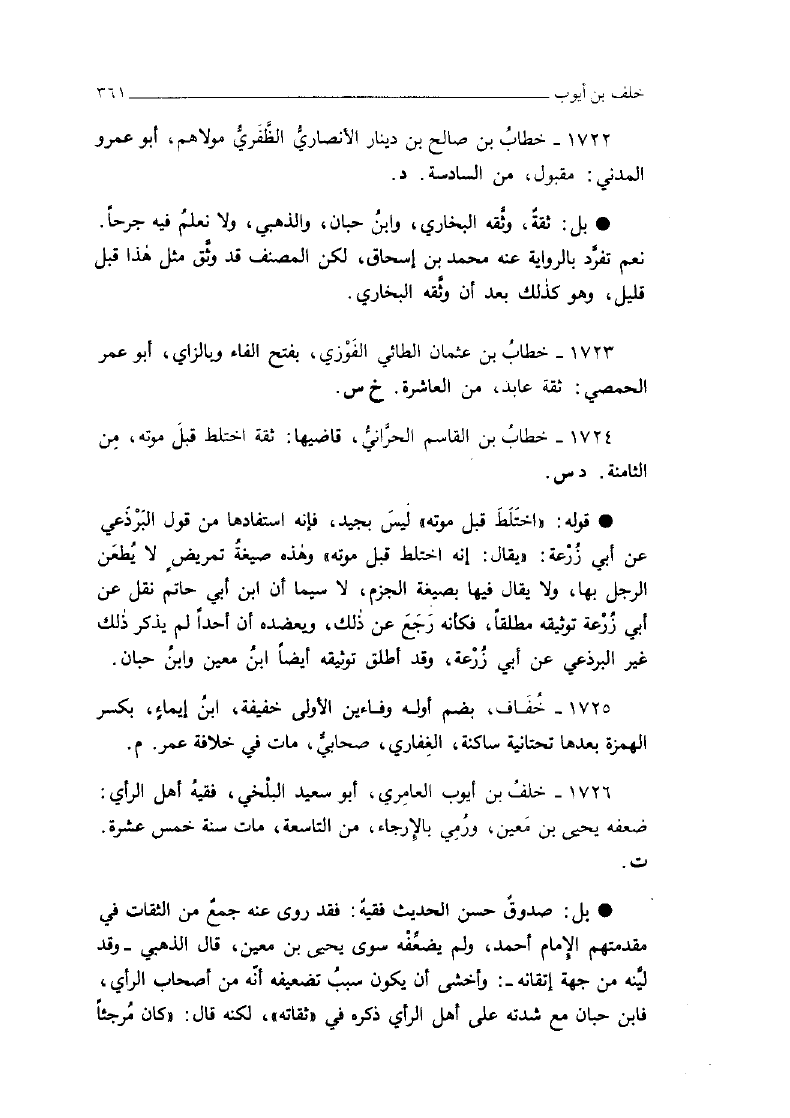 خلف بن أيوب ٣٦١
١٧٢٢ ـ خطابُ بن صالح بن دينار الأنصاريُّ الظَّفَريُّ مولاهم، أبو عمرو
المدني: مقبول، من السادسة. د.
● بل: ثقةٌ، وثَّقه البخاري، وابنُ حبان، والذهبي، ولا نعلمُ فيه جرحاً.
نعم تفرَّد بالرواية عنه محمد بن إسحاق، لكن المصنف قد وثَّق مثل هٰذا قبل
قليل، وهو كذٰلك بعد أن وثَّقه البخاري.
١٧٢٣ ـ خطابُ بن عثمان الطائي الفَوْزي، بفتح الفاء وبالزاي، أبو عمر
الحمصي: ثقة عابد، من العاشرة. خ س.
١٧٢٤ ـ خطابُ بن القاسم الحرَّانيُّ، قاضيها: ثقة اختلط قبلَ موته، مِن
الثامنة. د س.
● قوله: «اختَلَطَ قبل موته» لَيسَ بجيد، فإنه استفادها من قول البَرْذَعي
عن أبي زُرْعة: «يقال: إنه اختلط قبل موته» وهٰذه صيغةُ تمريضٍ لا يُطعَن
الرجل بها، ولا يقال فيها بصيغة الجزم، لا سيما أن ابن أبي حاتم نقل عن
أبي زُرْعة توثيقه مطلقاً، فكأنه رَجَعَ عن ذٰلك، ويعضده أن أحداً لم يذكر ذٰلك
غير البرذعي عن أبي زُرْعة، وقد أطلق توثيقه أيضاً ابنُ معين وابنُ حبان.
١٧٢٥ ـ خُفَـاف، بضم أولـه وفـاءين الأولى خفيفة، ابنُ إيماءٍ، بكسر
الهمزة بعدها تحتانية ساكنة، الغِفاري، صحابيٌّ، مات في خلافة عمر. م.
١٧٢٦ ـ خلفُ بن أيوب العامِري، أبو سعيد البلْخي، فقيهُ أهل الرأي:
ضعفه يحيى بن مَعين، ورُمِي بالإِرجاء، من التاسعة، مات سنة خمس عشرة.
ت.
● بل: صدوقٌ حسن الحديث فقيهٌ: فقد روى عنه جمعٌ من الثقات في
مقدمتهم الإِمام أحمد، ولم يضعِّفْه سوى يحيى بن معين، قال الذهبي ـ وقد
ليَّنه من جهة إتقانه ـ: وأخشى أن يكون سببُ تضعيفه أنَّه من أصحاب الرأي،
فابن حبان مع شدته على أهل الرأي ذكره في «ثقاته»، لكنه قال: «كان مُرجئاً